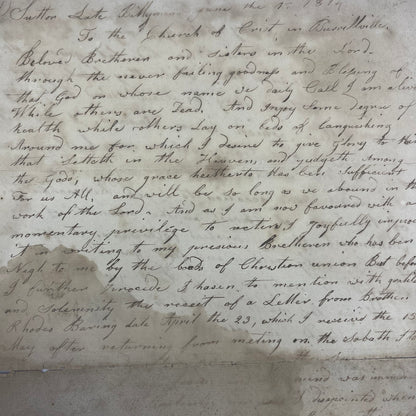 Sutton Late June the 1st 1819
To the Church of Crist, in Burrillville
Beloved Bretheren and Sisters in the Lord
through the never failing goodness and Blessing of
that God on whose name we daily Call I am alive
While others, are Dead, And Injoy Some degree of
health while others Lay on beds of languishing
Around me for which I desire to give glory to him
that Sitteth in the Heavens, and judgeth Among
the Gods, whose grace heitherto Has been Sufficient
For us All, and will be so long as we abound in the
work of the Lord. And as I am now favoured with a
momentary privilege to retire I Joyfully improve
it in writing to my presious Bretheren who has been
Nigh to me by the bods of Christian union But before
I further procede I hasen to mention with gratit
and Solemnity the receet of a Letter from Brother
Rhodes Baring date April the 23, which I receivs the 15
May after returning from meeting on the Sabath
the
mind was
disapointed when